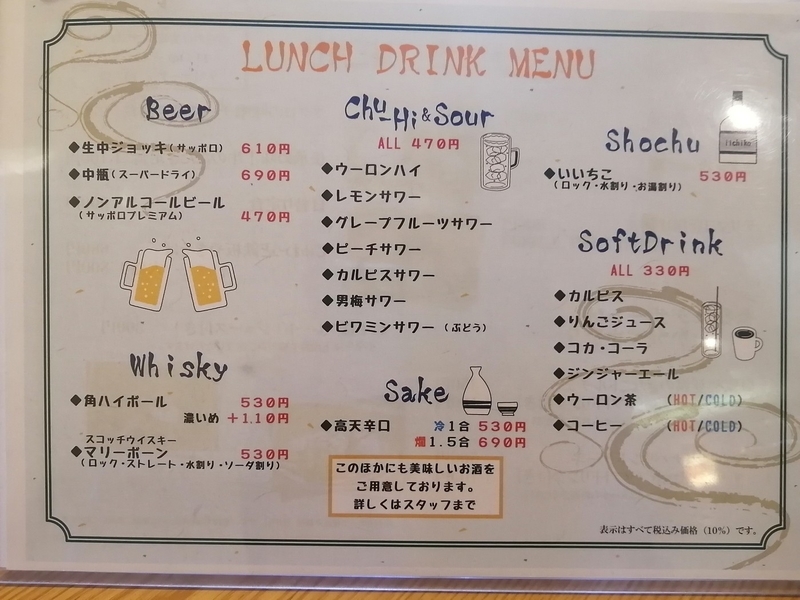 LUNCH DRINK MENU
Beer
◆生中ジョッキ(サッポロ) 610円
◆中瓶(スーパードライ) 690円
◆ノンアルコールビール
(サッポロプレミアム) 470円
Whisky
◆角ハイボール 530円
濃いめ +110円
スコッチウイスキー
◆マリーボーン 530円
(ロック・ストレート・水割り・ソーダ割り)
Chu-Hi&Sour
ALL 470円
◆ウーロンハイ
◆レモンサワー
◆グレープフルーツサワー
◆ピーチサワー
◆カルピスサワー
◆男梅サワー
◆ビワミンサワー (ぶどう)
Sake
◆高天辛口 冷1合 530円
燗1.5合 690円
このほかにも美味しいお酒を
ご用意しております。
詳しくはスタッフまで
Shochu
◆いいちこ 530円
(ロック・水割り・お湯割り)
SoftDrink
ALL 330円
◆カルピス
◆りんごジュース
◆コカ・コーラ
◆ジンジャーエール
◆ウーロン茶 (HOT/COLD)
◆コーヒー (HOT/COLD)
表示はすべて税込み価格(10%)です。